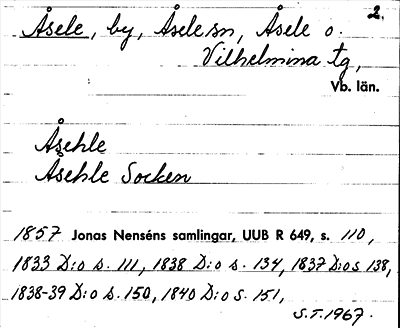 2.
Åsele, by, Åsele sn, Åsele o.
Vilhelmina tg,
Vb. län.
Åsehle
Åsehle Socken
1857 Jonas Nenséns samlingar, UUB R 649, s. 110,
1833 D:o s. 111, 1838 D:o s. 134, 1837 D:o s 138,
1838-39 D:o s. 150, 1840 D:o s. 151,
S.T. 1967.